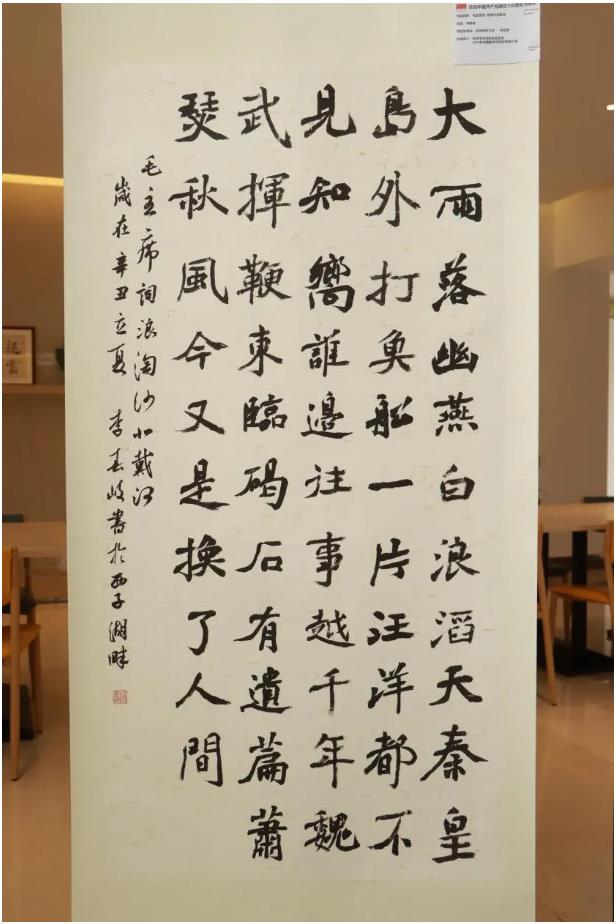 大雨落幽燕白浪滔天秦皇
島外打魚船一片汪洋都不
見知嚮誰邊往事越千年魏
武揮鞭東臨碣石有遺篇蕭
瑟秋風今又是換了人間
毛主席詞浪淘沙北戴河
歲在辛丑立夏 李春岐書於西子湖畔